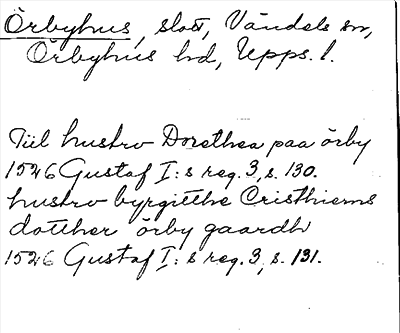 Örbyhus, slott, Vändels sn,
Örbyhus hd, Upps. l.
Tiil hustro Dorethea paa örby
1526 Gustaf I:s reg. 3, s. 130.
hustro byrgitthe Cristhierns
dotther örby gaardh
1526 Gustaf I:s reg. 3, s. 131.